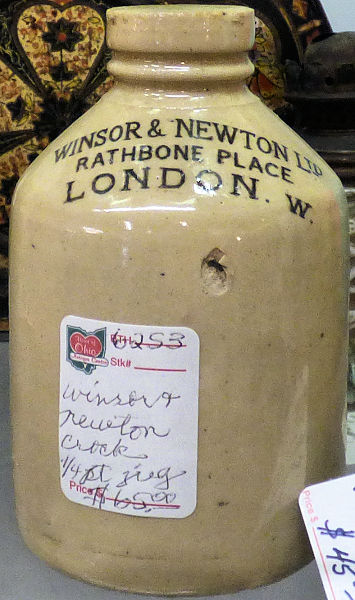 WINSOR & NEWTON LTD
RATHBONE PLACE
LONDON. W.
Heart of
Ohio
Antique Center
6253
Stk#
Winsor &
newton
crock
1/4 pt jug
Price $
$65.00
Price $
$45